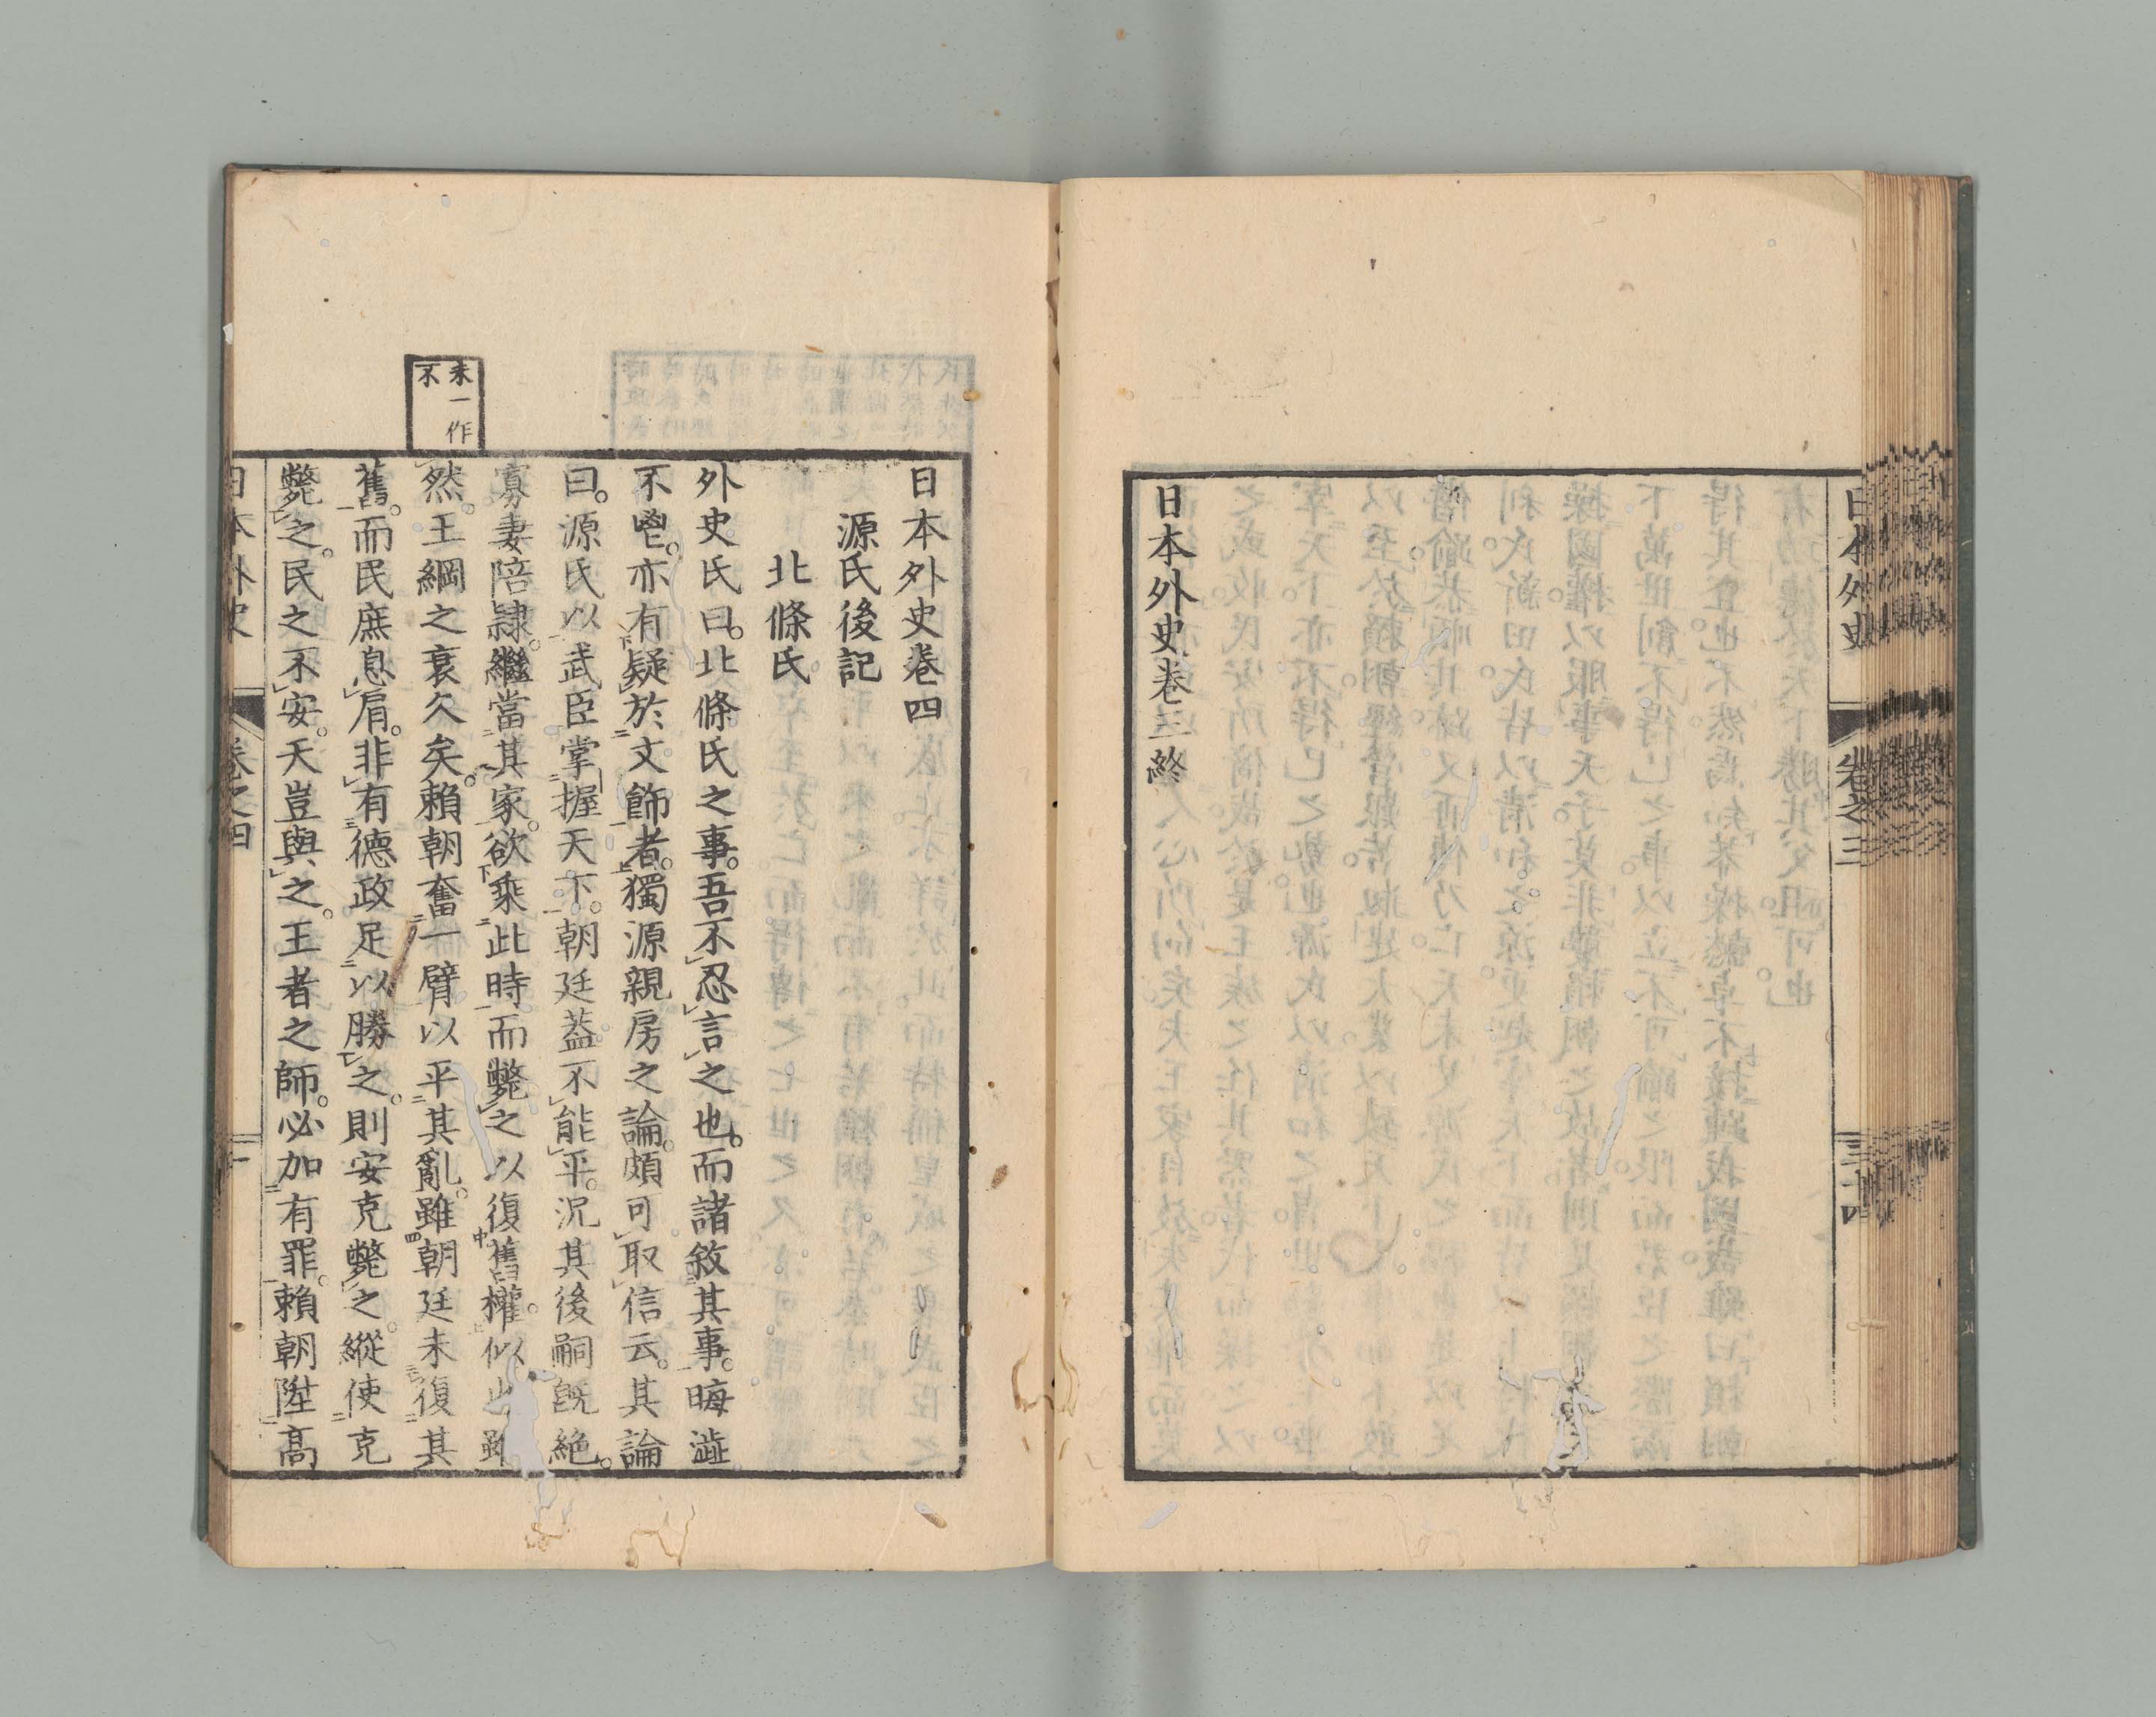 日本外史
卷之三
三十四
日本外史卷三終
日本外史卷四
源氏後記
北條氏
外史氏曰。北條氏之事。吾不忍言之也。而諸敘其事。晦澁
不鬯。亦有疑於文飾者。獨源親房之論。頗可取信云。其論
曰。源氏以武臣掌握天下。朝廷蓋不能平。況其後嗣既絶。
寡妻陪隷。繼當其家。欲乘此時而斃之以復舊權。似
然。王綱之衰久矣。賴朝奮一臂以平其亂。雖朝廷未復其
舊。而民庶息肩。非有德政足以勝之。則安克斃之。縱使克
斃之。民之不安。天豈與之。王者之師。必加有罪。賴朝陞高
未一作
不
日本外史
卷之四
一